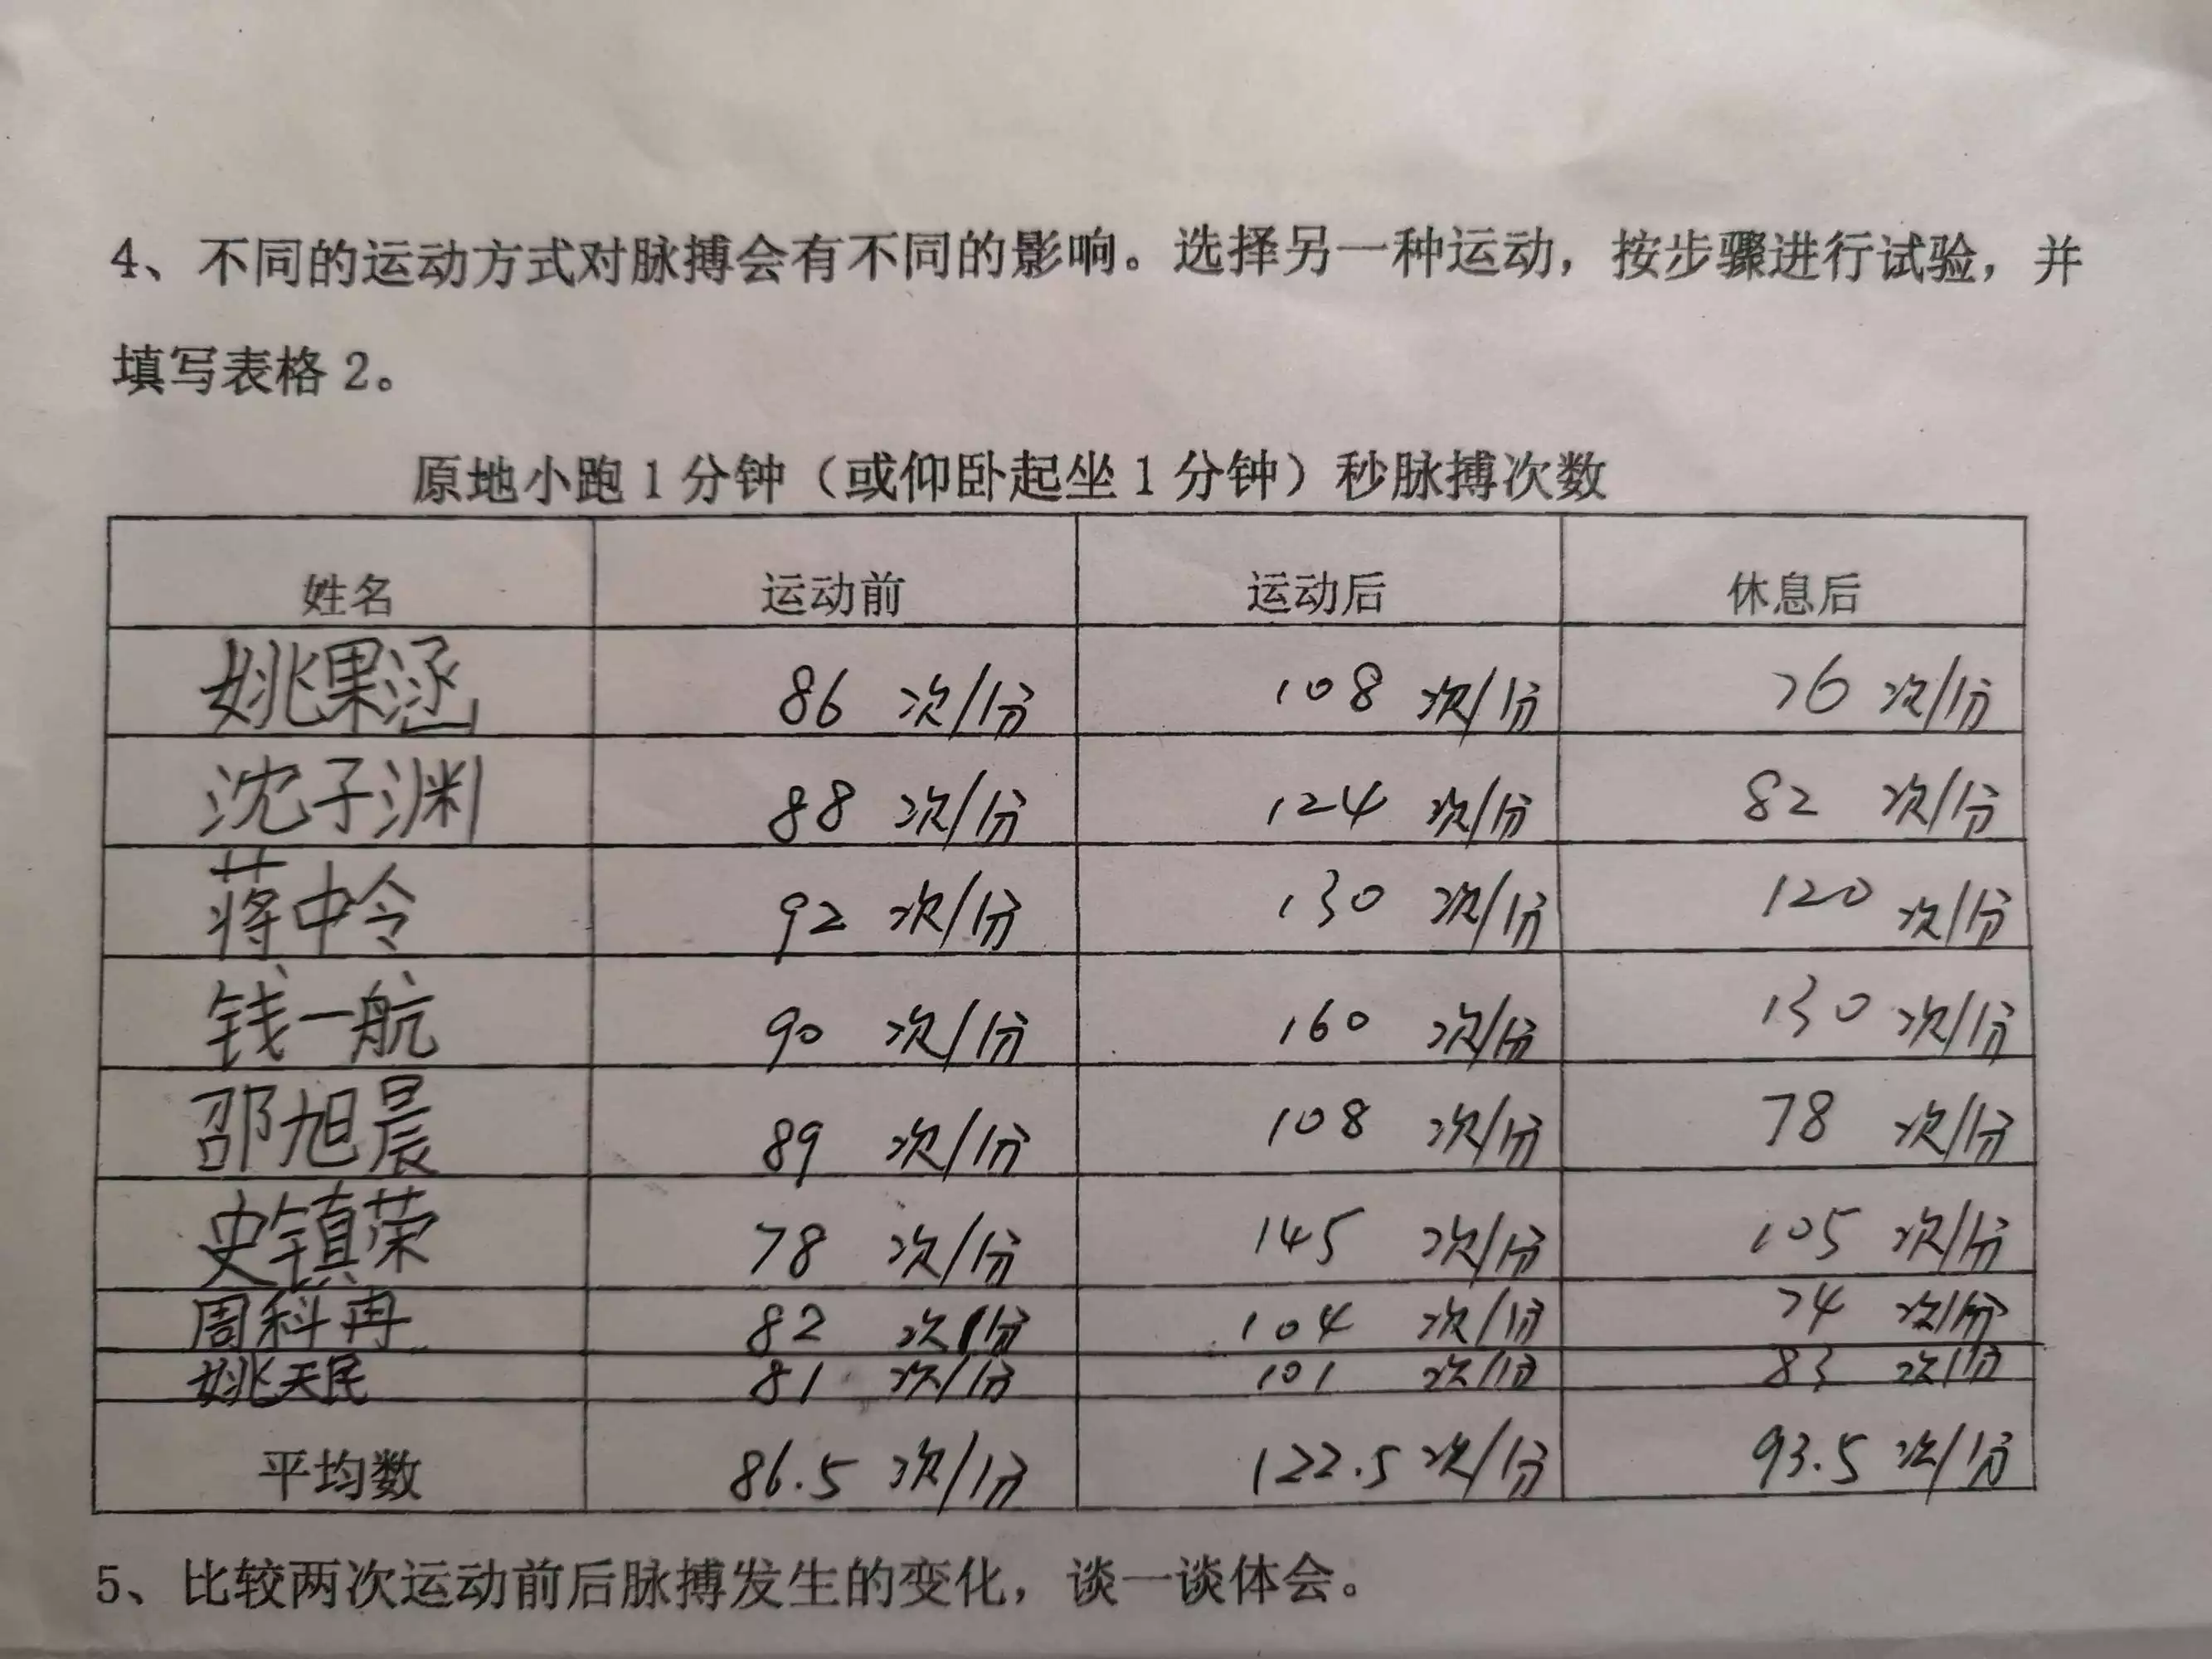 4、不同的运动方式对脉搏会有不同的影响。选择另一种运动，按步骤进行试验，并
填写表格2。
原地小跑1分钟（或仰卧起坐1分钟）秒脉搏次数
姓名 运动前 运动后 休息后
姚果涵 86 次/分 108 次/分 76 次/分
沈子渊 88 次/分 124 次/分 82 次/分
蒋中令 92 次/分 130 次/分 120 次/分
钱一航 90 次/分 160 次/分 130 次/分
邵旭晨 89 次/分 108 次/分 78 次/分
史镇荣 78 次/分 145 次/分 105 次/分
周科冉 82 次/分 104 次/分 74 次/分
姚天民 81 次/分 101 次/分 83 次/分
平均数 86.5 次/分 122.5 次/分 93.5 次/分
5、比较两次运动前后脉搏发生的变化，谈一谈体会。